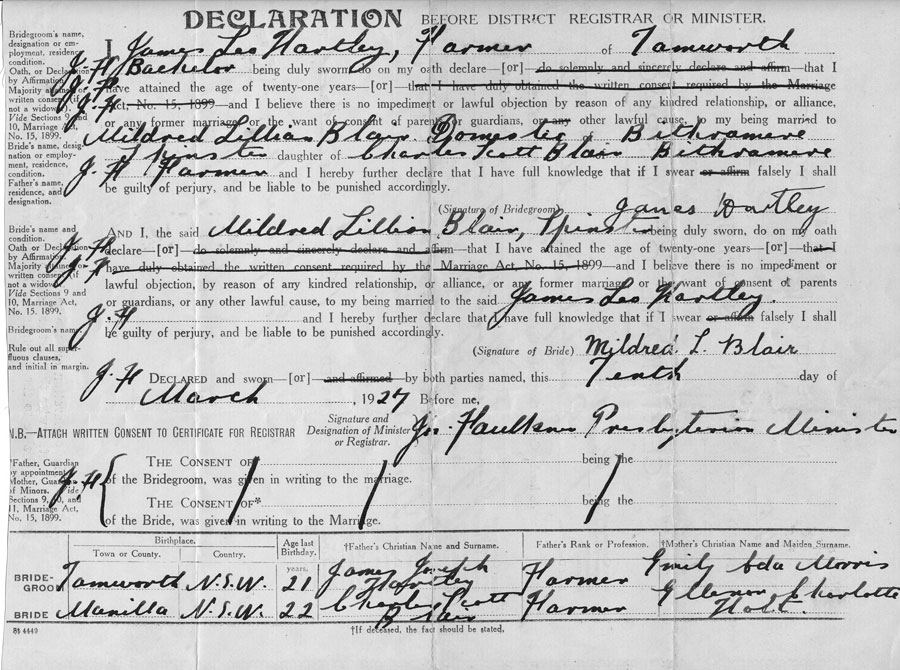 DECLARATION BEFORE DISTRICT REGISTRAR OR MINISTER.
Bridegroom's name, designation or employment, residence, condition.
Oath, or Declaration by Affirmation.
Majority or written consent if not a widower
Vide Sections 9 and 10, Marriage Act, No. 15, 1899.
Bride's name, designation or employment, residence, condition.
Father's name, residence, and designation.
I, James Leo Hartley, Farmer of Tamworth
J. H Bachelor being duly sworn do on my oath declare—[or]—do solemnly and sincerely declare and affirm—that I
J. H have attained the age of twenty-one years—[or]—that I have duly obtained the written consent required by the Marriage
J. H Act, No. 15, 1899—and I believe there is no impediment or lawful objection by reason of any kindred relationship, or alliance,
or any former marriage, or the want of consent of parents or guardians, or any other lawful cause, to my being married to
Mildred Lillian Blair Domestic of Bithramere
Spinster daughter of Charles Scott Blair Bithramere
J. H Farmer and I hereby further declare that I have full knowledge that if I swear or affirm falsely I shall
be guilty of perjury, and be liable to be punished accordingly.
(Signature of Bridegroom) James Hartley
Bride's name and condition.
Oath or Declaration by Affirmation.
Majority or written consent if not a widow
Vide Sections 9 and 10, Marriage Act, No. 15, 1899.
Bridegroom's name.
Rule out all superfluous clauses, and initial in margin.
AND I, the said Mildred Lillian Blair, Spinster being duly sworn, do on my oath
J. H declare—[or]—do solemnly and sincerely declare and affirm—that I have attained the age of twenty-one years—[or]—that I
J. H have duly obtained the written consent required by the Marriage Act, No. 15, 1899—and I believe there is no impediment or
lawful objection, by reason of any kindred relationship, or alliance, or any former marriage, or the want of consent of parents
or guardians, or any other lawful cause, to my being married to the said James Leo Hartley.
J. H and I hereby further declare that I have full knowledge that if I swear or affirm falsely I shall
be guilty of perjury, and be liable to be punished accordingly.
(Signature of Bride) Mildred L. Blair
J. H DECLARED and sworn—[or]—and affirmed—by both parties named, this Tenth day of
March, 1927 Before me,
N.B.—ATTACH WRITTEN CONSENT TO CERTIFICATE FOR REGISTRAR
Signature and Designation of Minister or Registrar.
Faulkner Presbyterian Minister
*Father, Guardian by appointment, Mother, Guardian of Minors. Vide Sections 9, 10, and 11, Marriage Act, No. 15, 1899.
J. H THE CONSENT OF* being the
of the Bridegroom, was given in writing to the marriage.
THE CONSENT OF* being the
of the Bride, was given in writing to the Marriage.
Birthplace. Age last Birthday. †Father's Christian Name and Surname. Father's Rank or Profession. †Mother's Christian Name and Maiden Surname.
Town or County. Country.
years.
BRIDEGROOM Tamworth N.S.W. 21 James Joseph Hartley Farmer Emily Ada Morris
BRIDE Manilla N.S.W. 22 Charles Scott Blair Farmer Charlotte
†If deceased, the fact should be stated.